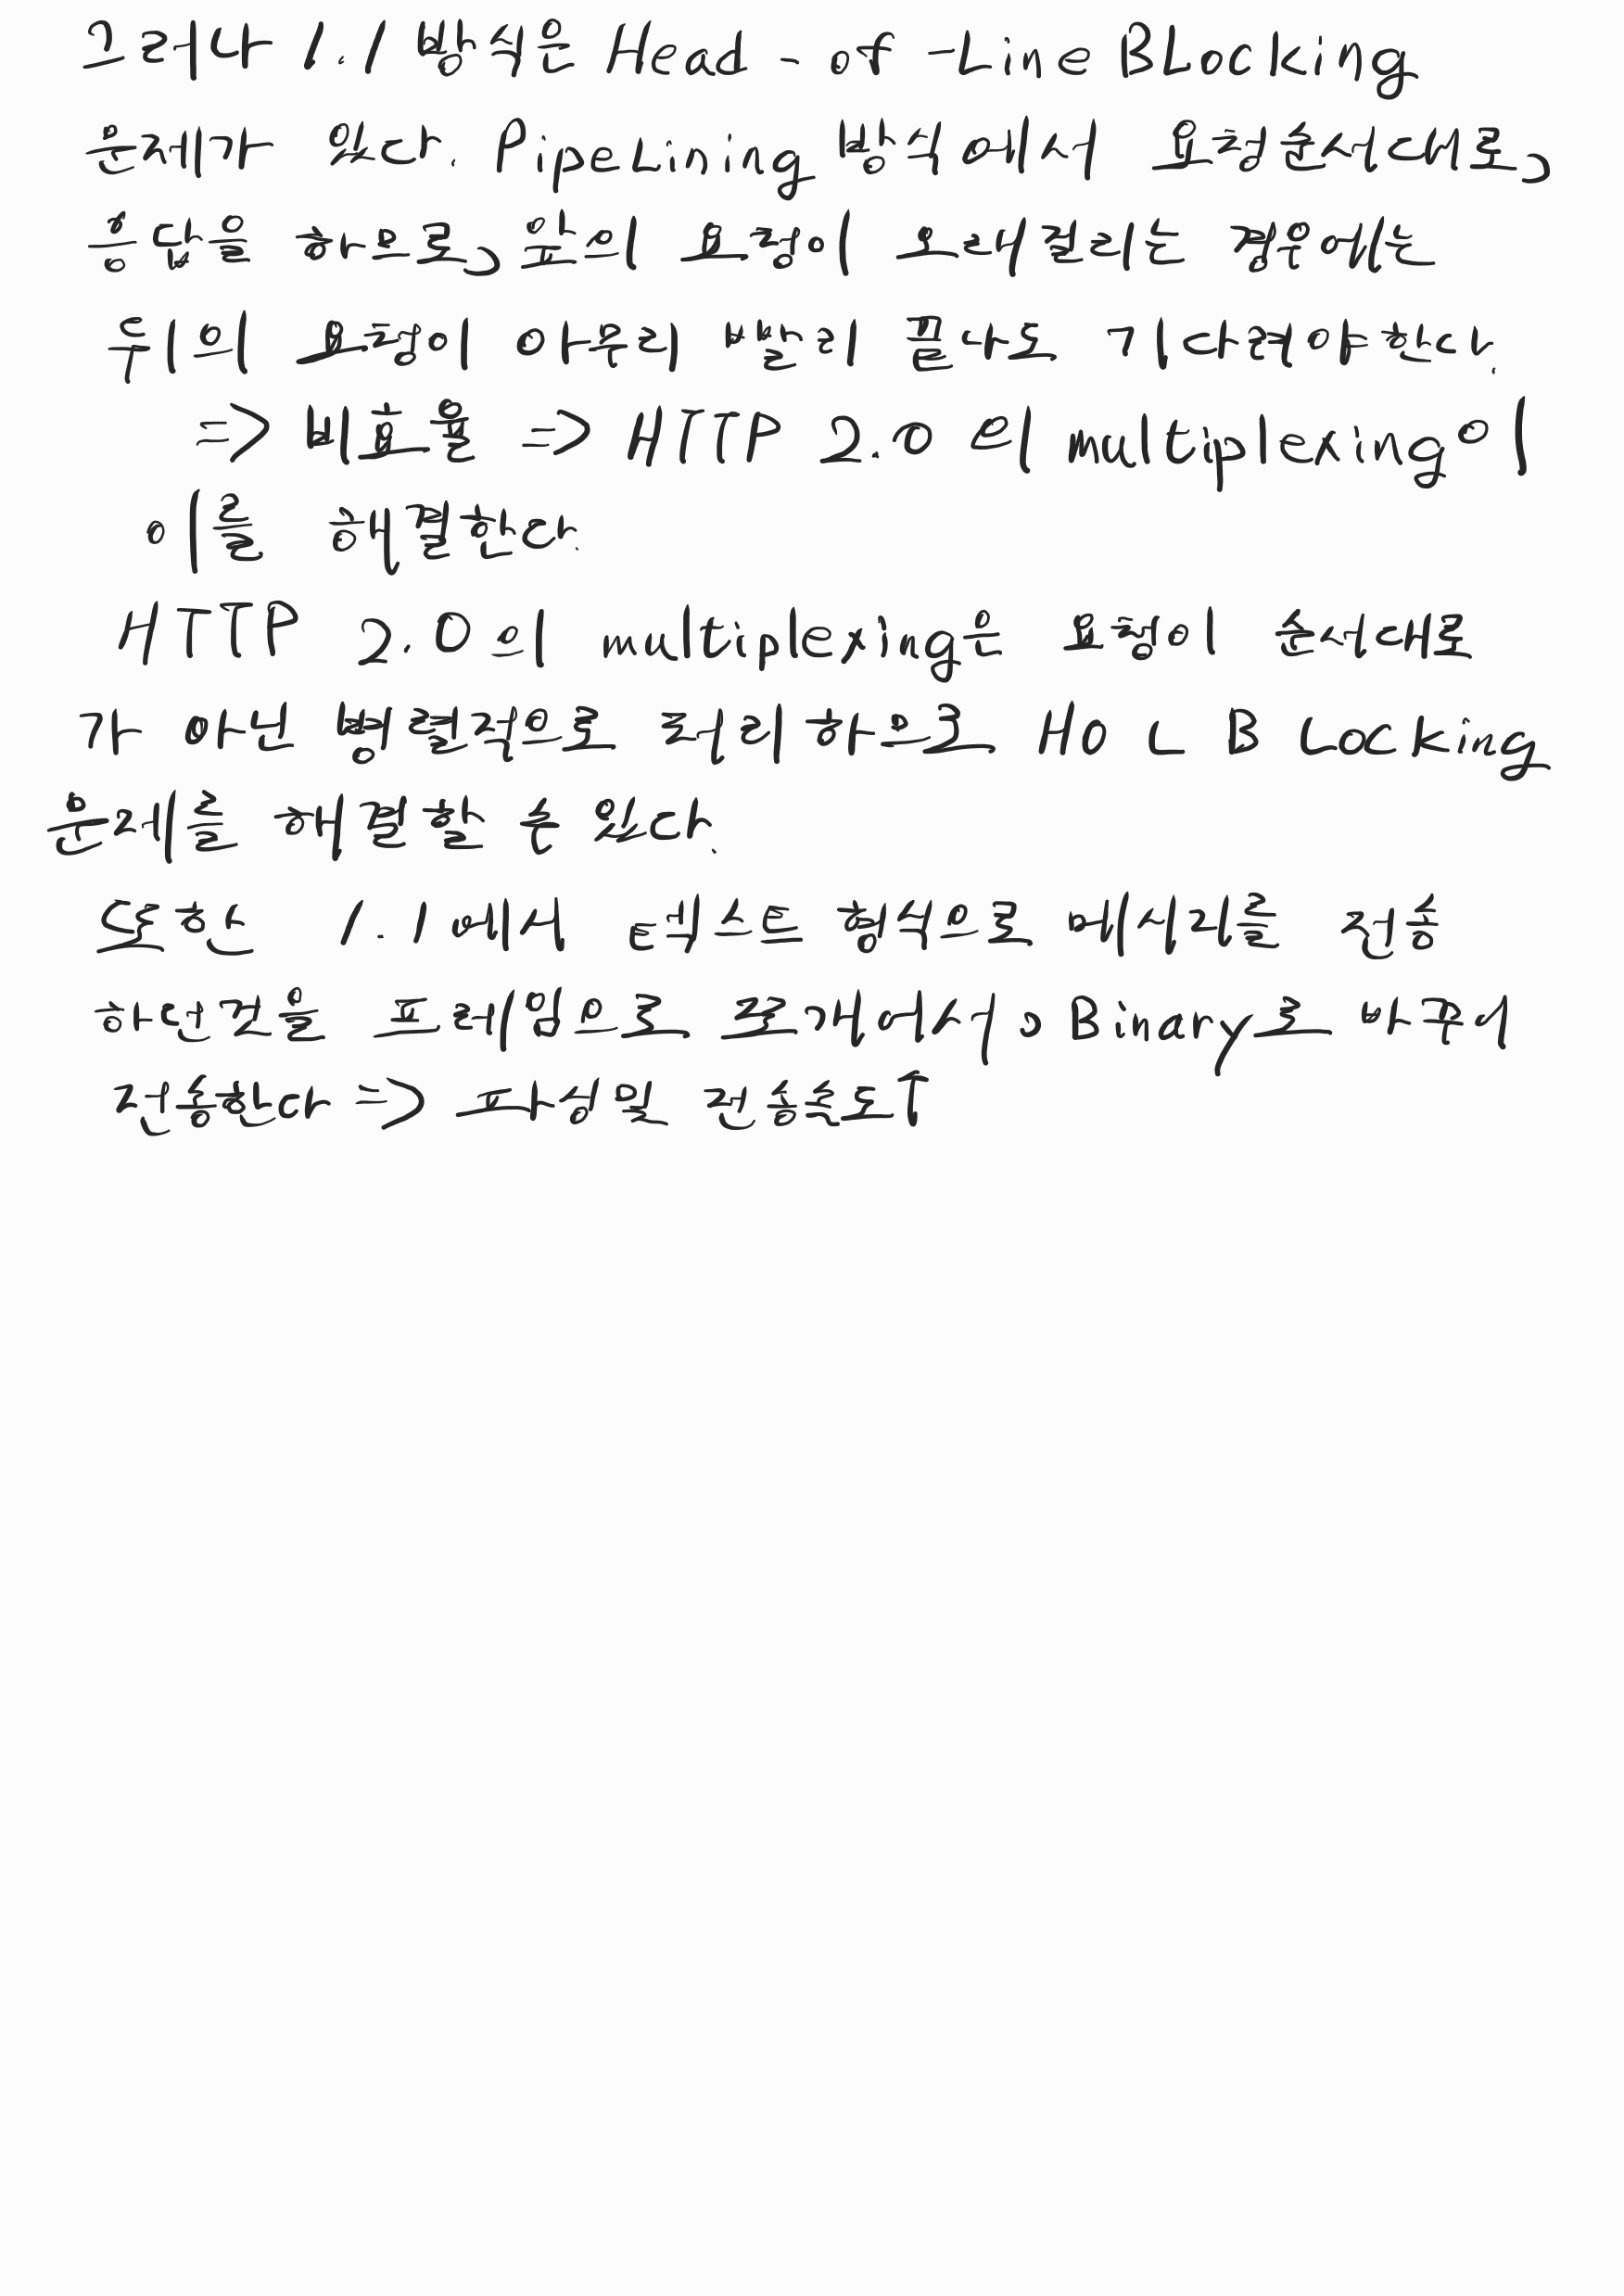 그러나 1.1 방식은 Head - of -Line BLocking
문제가 있다. PipeLining 방식에서 요청순서대로,
응답을 하므로, 앞의 요청이 오래걸리는 경우에는
뒤의 요청이 아무리 빨리 끝나도 기다려야한다.
=> 비효율 => HTTP 2.0 의 multiplexing이
이를 해결한다.
HTTP 2.0의 multiplexing은 요청이 순서대로
가 아닌 병렬적으로 처리하므로 HO L B Locking
문제를 해결할 수 있다.
또한 1.1에서 텍스트 형식으로 메시지를 전송
하던것을 프레임으로 쪼개어서, Binary로 바꾸어
전송한다 => 파싱및 전송속도↑